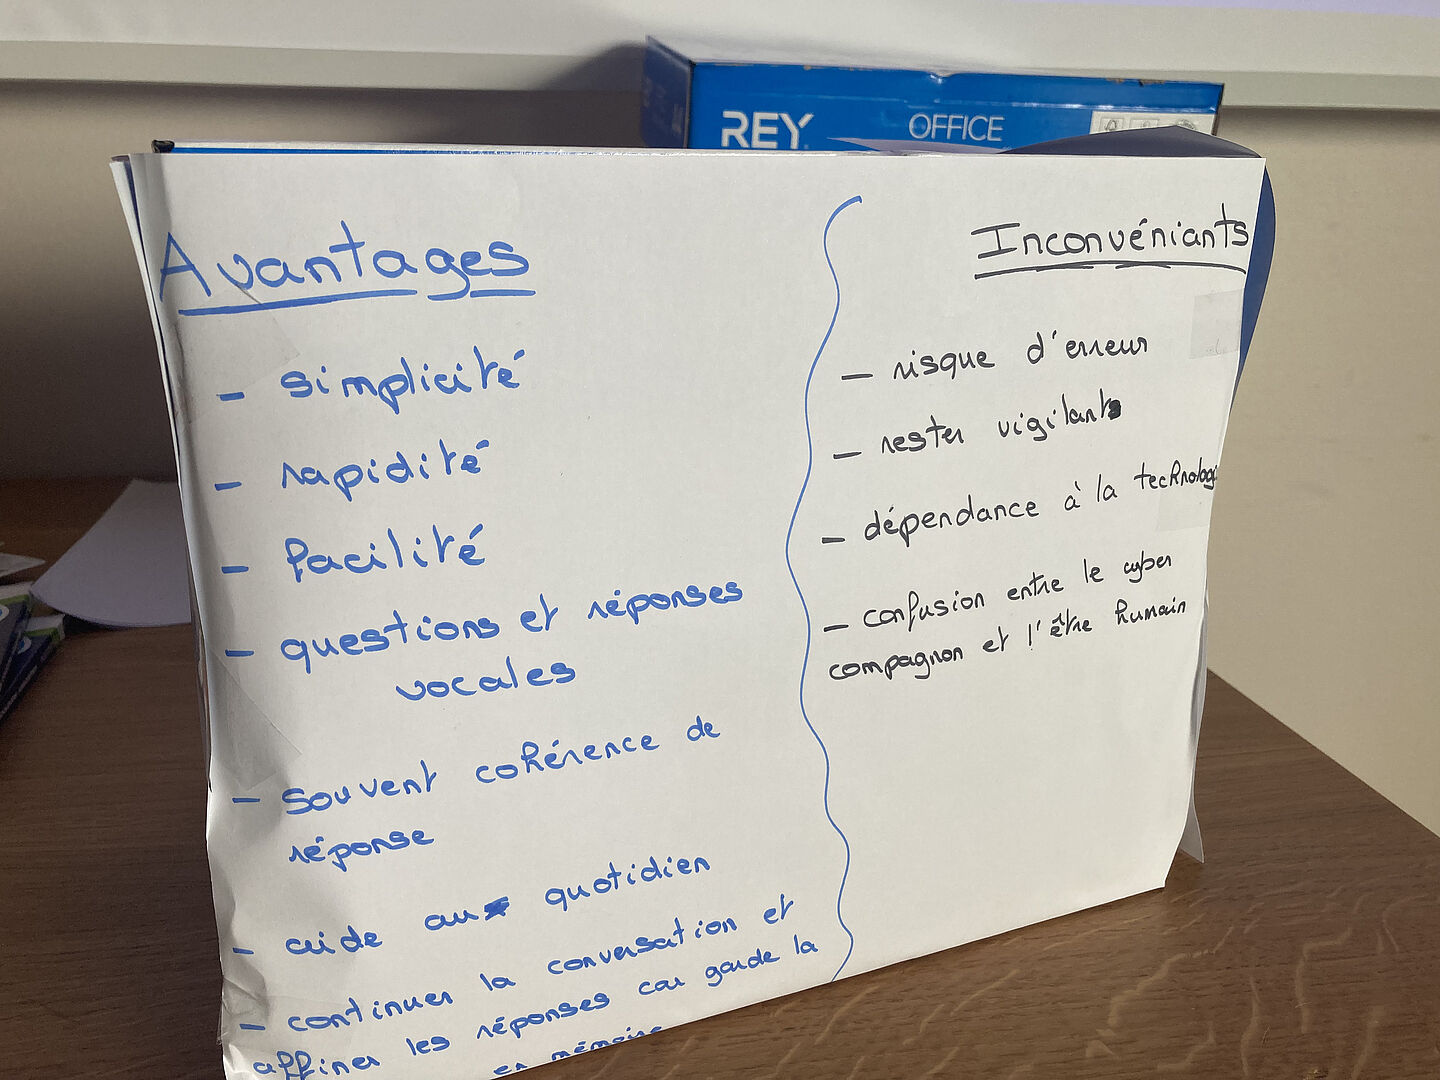 REY OFFICE
Avantages
- simplicité
- rapidité
- facilité
- questions et réponses
vocales
- souvent cohérence de
réponse
- aide au quotidien
- continuer la conversation et
affiner les réponses car garde la
en mémoire
Inconvéniants
- risque d'erreur
- rester vigilant
- dépendance à la technologi
- confusion entre le cyber
compagnon et l'être humain